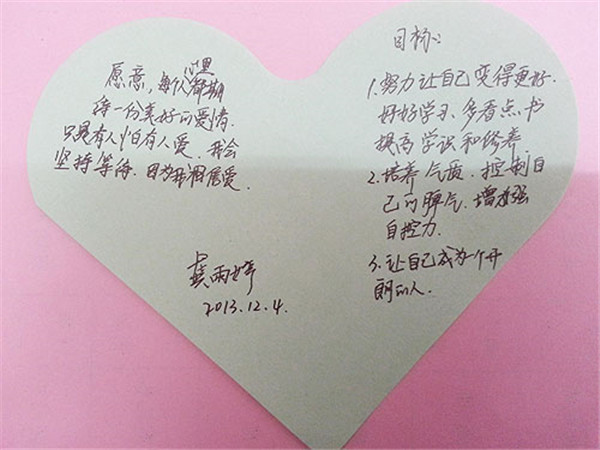 愿意，每个人心里都期
待一份美好的爱情.
只是有人怕有人爱. 我会
坚持等待. 因为我相信爱.
龚雨婷
2013.12.4.
目标：
1.努力让自己变得更好.
好好学习、多看点书
提高学识和修养.
2.培养气质. 控制自
己的脾气. 增强
自控力.
3.让自己成为一个开
朗的人.